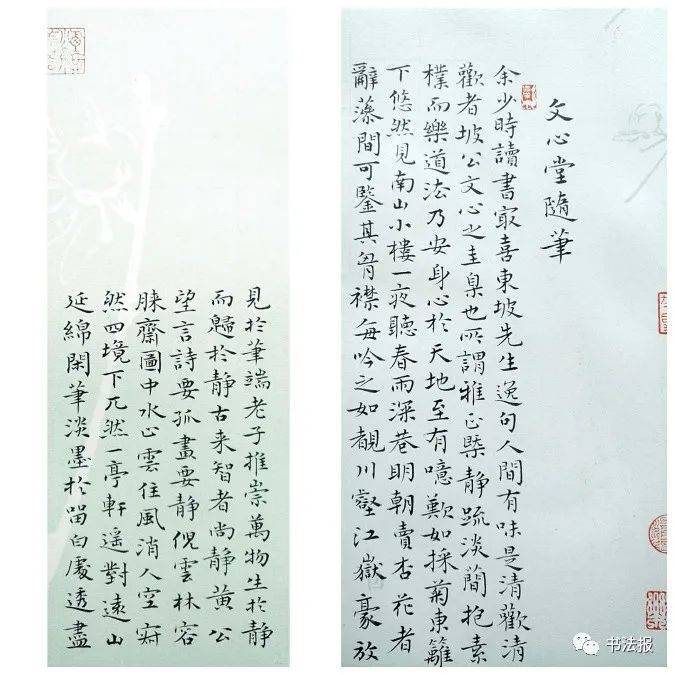 文心堂隨筆
余少時讀書冣喜東坡先生逸句人間有味是清歡清
歡者坡公文心之圭臬也所謂雅正槩靜疏淡蕳抱素
樸而樂道法乃安身心於天地至有噫歎如採菊東籬
下悠然見南山小樓一夜聽春雨深巷明朝賣杏花者
辭藻間可鑒其胷襟每吟之如觀川壑江嶽豪放
見於筆端老子推崇萬物生於靜
而歸於靜古来智者尚靜黄公
望言詩要孤畫要靜倪雲林容
膝齋圖中水止雲住風消人空寂
然四境下兀然一亭軒遥對遠山
延綿閑筆淡墨於留白處透盡
书法报